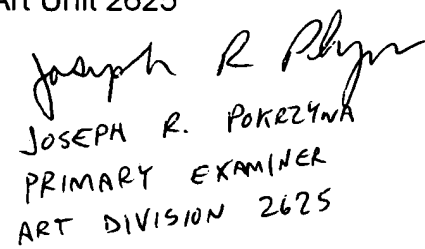 Art Unit 2625
Joseph R
JOSEPH R. POKRZYWA
PRIMARY EXAMINER
ART DIVISION 2625